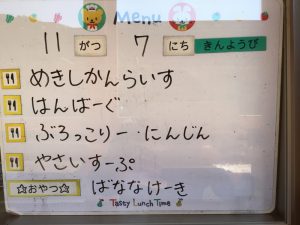 Menu
11 がつ 7 にち きんようび
めきしかんらいす
はんばーぐ
ぶろっこりー・にんじん
やさいすーぷ
☆おやつ☆ ばななけーき
Tasty Lunch Time